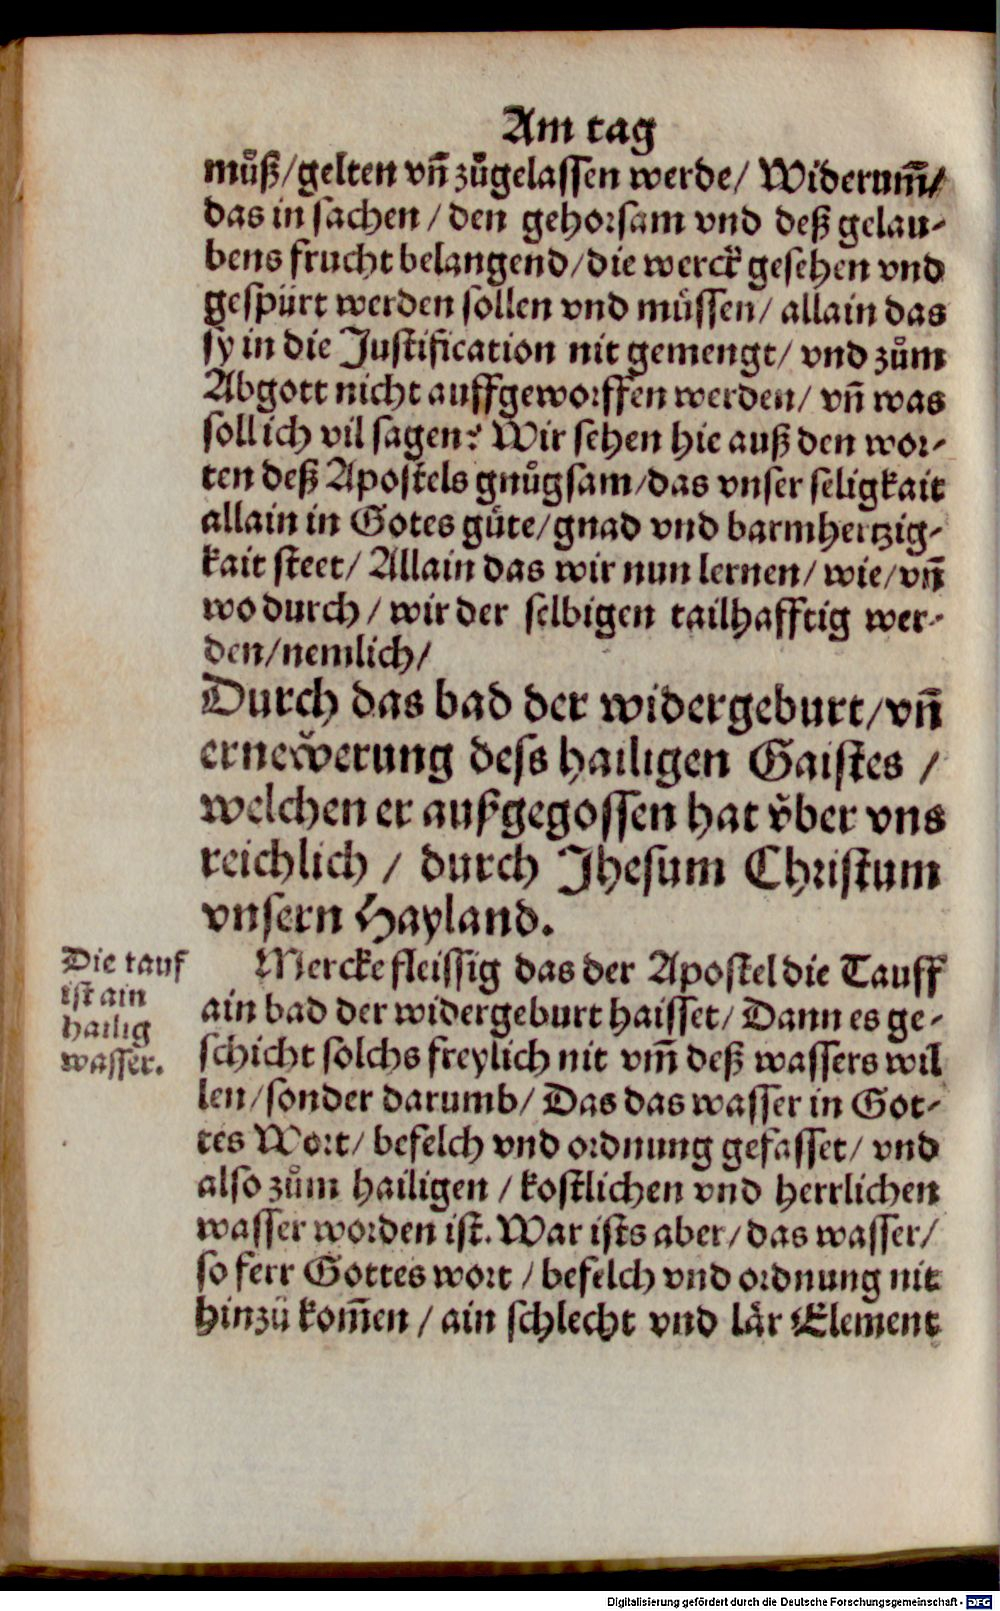 Am tag
muͦß/gelten vn̄ zuͦgelassen werde/ Widerum̄/
das in sachen/den gehorsam vnd deß gelau-
bens frucht belangend/die werck gesehen vnd
gespürt werden sollen vnd müssen/ allain das
sy in die Justification nit gemengt/ vnd zuͦm
Abgott nicht auffgeworffen werden/ vn̄ was
soll ich vil sagen? Wir sehen hie auß den wor-
ten deß Apostels gnuͦgsam/das vnser seligkait
allain in Gotes güte/gnad vnd barmhertzig-
kait steet/ Allain das wir nun lernen/ wie/vn̄
wo durch/ wir der selbigen tailhafftig wer-
den/nemlich/
Durch das bad der widergeburt/vn̄
ernewͤerung dess hailigen Gaistes /
welchen er außgegossen hat vͤber vns
reichlich / durch Jhesum Christum
vnsern Hayland.
Die tauf
ist ain
hailig
wasser.
Mercke fleissig das der Apostel die Tauff
ain bad der widergeburt haisset/ Dann es ge-
schicht solchs freylich nit vm̄ deß wassers wil
len/sonder darumb/ Das das wasser in Got-
tes Wort/ befelch vnd ordnung gefasset/ vnd
also zuͦm hailigen / kostlichen vnd herrlichen
wasser worden ist. War ists aber/das wasser/
so ferr Gottes wort / befelch vnd ordnung nit
hinzuͦ kom̄en / ain schlecht vnd lär Element
Digitalisierung gefördert durch die Deutsche Forschungsgemeinschaft - DFG